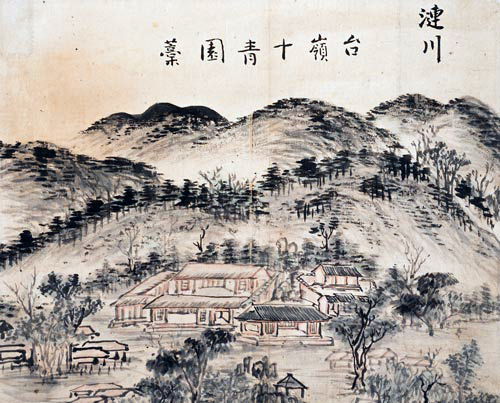 漣川
台嶺十青園藁